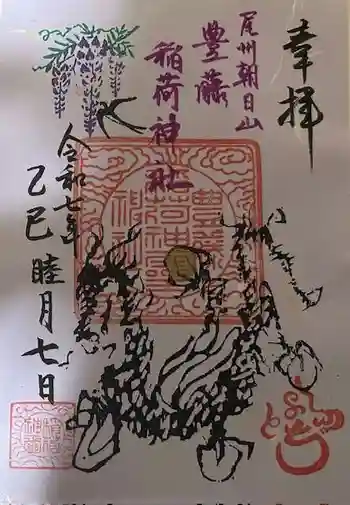 奉拝
尾州朝日山
豊藤
稲荷神社
令和七年
乙巳
睦月七日